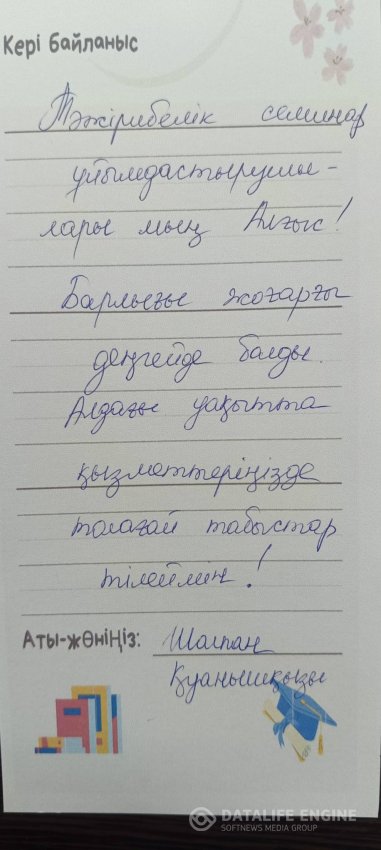 Кері байланыс
Тәжірибелік семинар
ұйымдастырушы-
лары мың Алғыс!
Барлығы жоғарғы
деңгейде болды.
Алдағы уақытта
қызметтеріңізде
толағай табыстар
тілеймін!
Аты-жөніңіз: Шолпан
Қуанышқызы
DATALIFE ENGINE
SOFTNEWS MEDIA GROUP